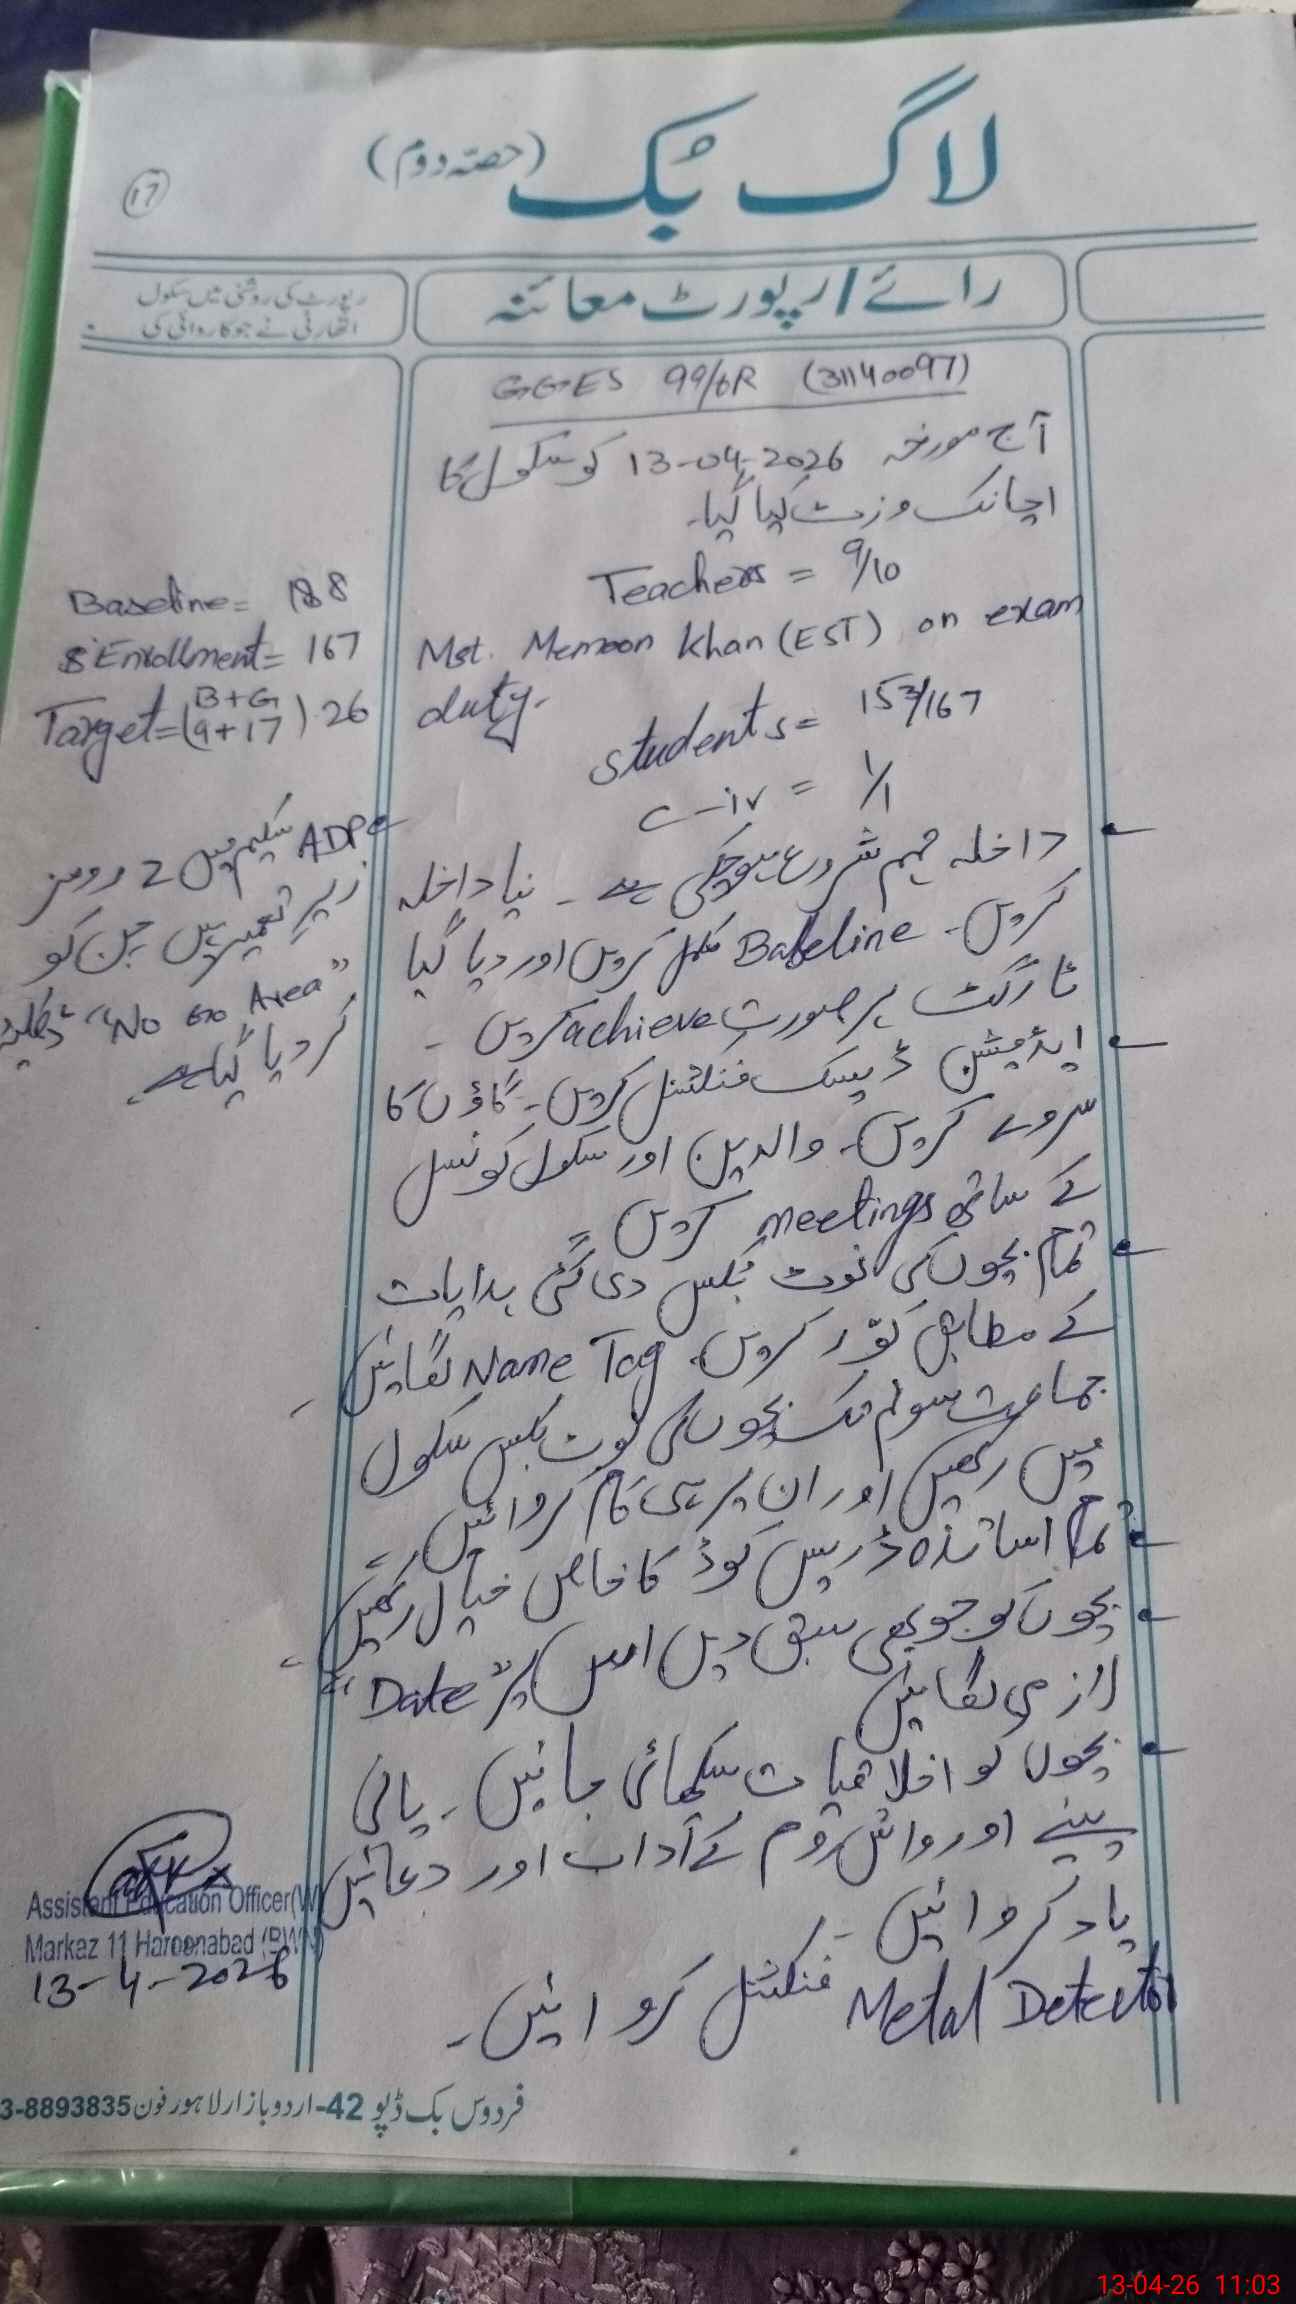 لاگ بک (حصّہ دوم)
17
رائے/رپورٹ معائنہ
رپورٹ کی روشنی میں سکول
اتھارٹی نے جو کاروائی کی
GGES 99/6R (31140097)
آج مورخہ 13-04-2026 کو سکول کا
اچانک وزٹ کیا گیا۔
Teachers = 9/10
Mst. Memoon Khan (EST) on exam
duty.
students = 153/167
C-iv = 1/1
داخلہ مہم شروع ہوچکی ہے۔ نیا داخلہ
کریں۔ Baseline مکمل کریں اور دیا گیا
ٹارگٹ ہر صورت achieve کریں۔
ایڈمیشن ڈیسک فنکشنل کریں۔ گاؤں کا
سروے کریں۔ والدین اور سکول کونسل
کے ساتھ meetings کریں
تمام بچوں کی نوٹ بکس دی گئی ہدایات
کے مطابق کوّر کریں۔ Name Tag لگائیں۔
جماعت سوئم تک بچوں کی نوٹ بکس سکول
میں رکھیں اور ان پر ہی کام کروائیں۔
تمام اساتذہ ڈریس کوڈ کا خاص خیال رکھیں۔
بچوں کو جو بھی سبق دیں اس پر "Date"
لازمی لگائیں
بچوں کو اخلاقیات سکھائی جائیں۔ پانی
پینے اور واش روم کے آداب اور دعائیں
یاد کروائیں۔
Metal Detector فنکشنل کروائیں۔
Baseline = 188
Enrollment = 167
B+G
Target = (9+17) 26
ADP سکیم میں 2 رومز
زیر تعمیر ہیں جن کو
"No Go Area"
کر دیا گیا ہے۔
Assistant Education Officer(W)
Markaz 11 Haroonabad (BWN)
13-4-2026
فردوس بک ڈپو 42-اردو بازار لاہور فون 3-8893835
13-04-26 11:03